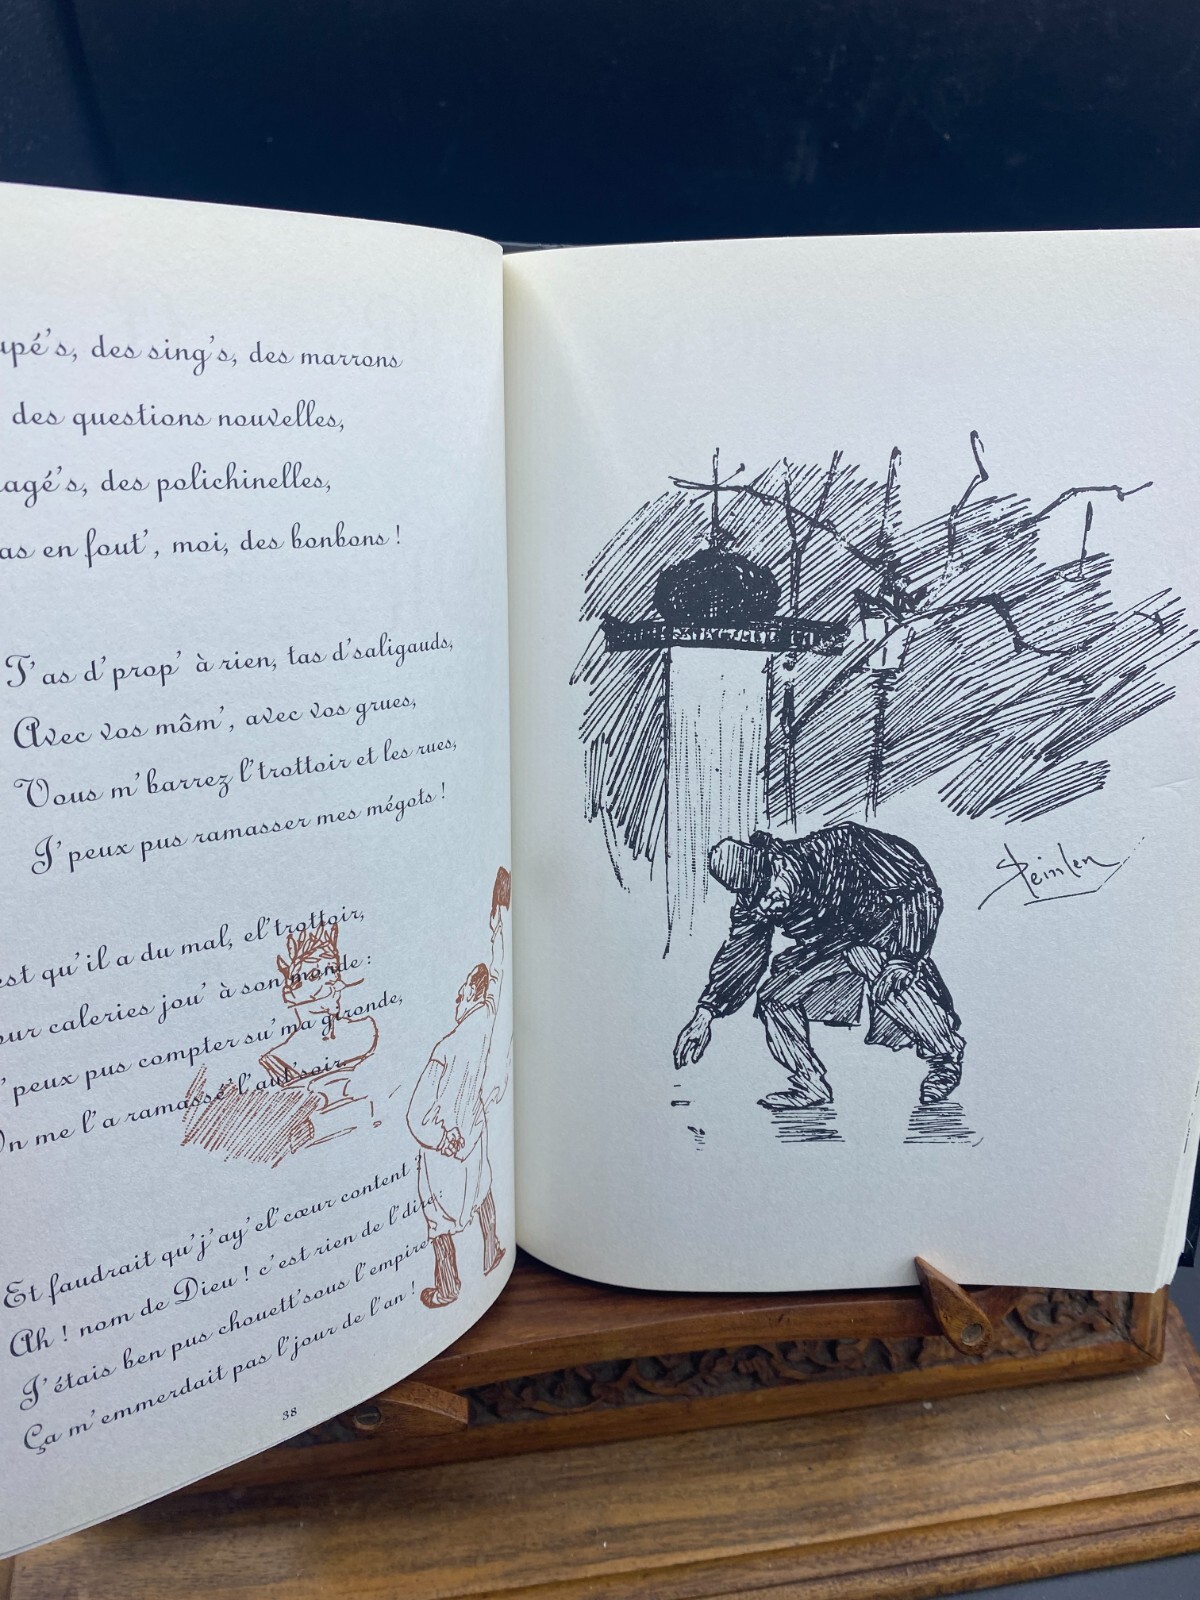 des sing's, des marrons
des questions nouvelles,
des polichinelles,
en fout', moi, des bonbons !
T'as d'prop' à rien, tas d'saligauds,
Avec vos môm', avec vos grues,
Vous m'barrez l'trottoir et les rues,
J'peux pus ramasser mes mégots !
qu'il a du mal, el'trottoir,
caleries jou' à son monde :
peux pus compter su'ma gironde,
me l'a ramassé'l'aut'soir.
Et faudrait qu'j'ay'el'cœur content ?
Ah ! nom de Dieu ! c'est rien de l'dire :
J'étais ben pus chouett'sous l'empire
Ça m'emmerdait pas l'jour de l'an !
38
Steinlen